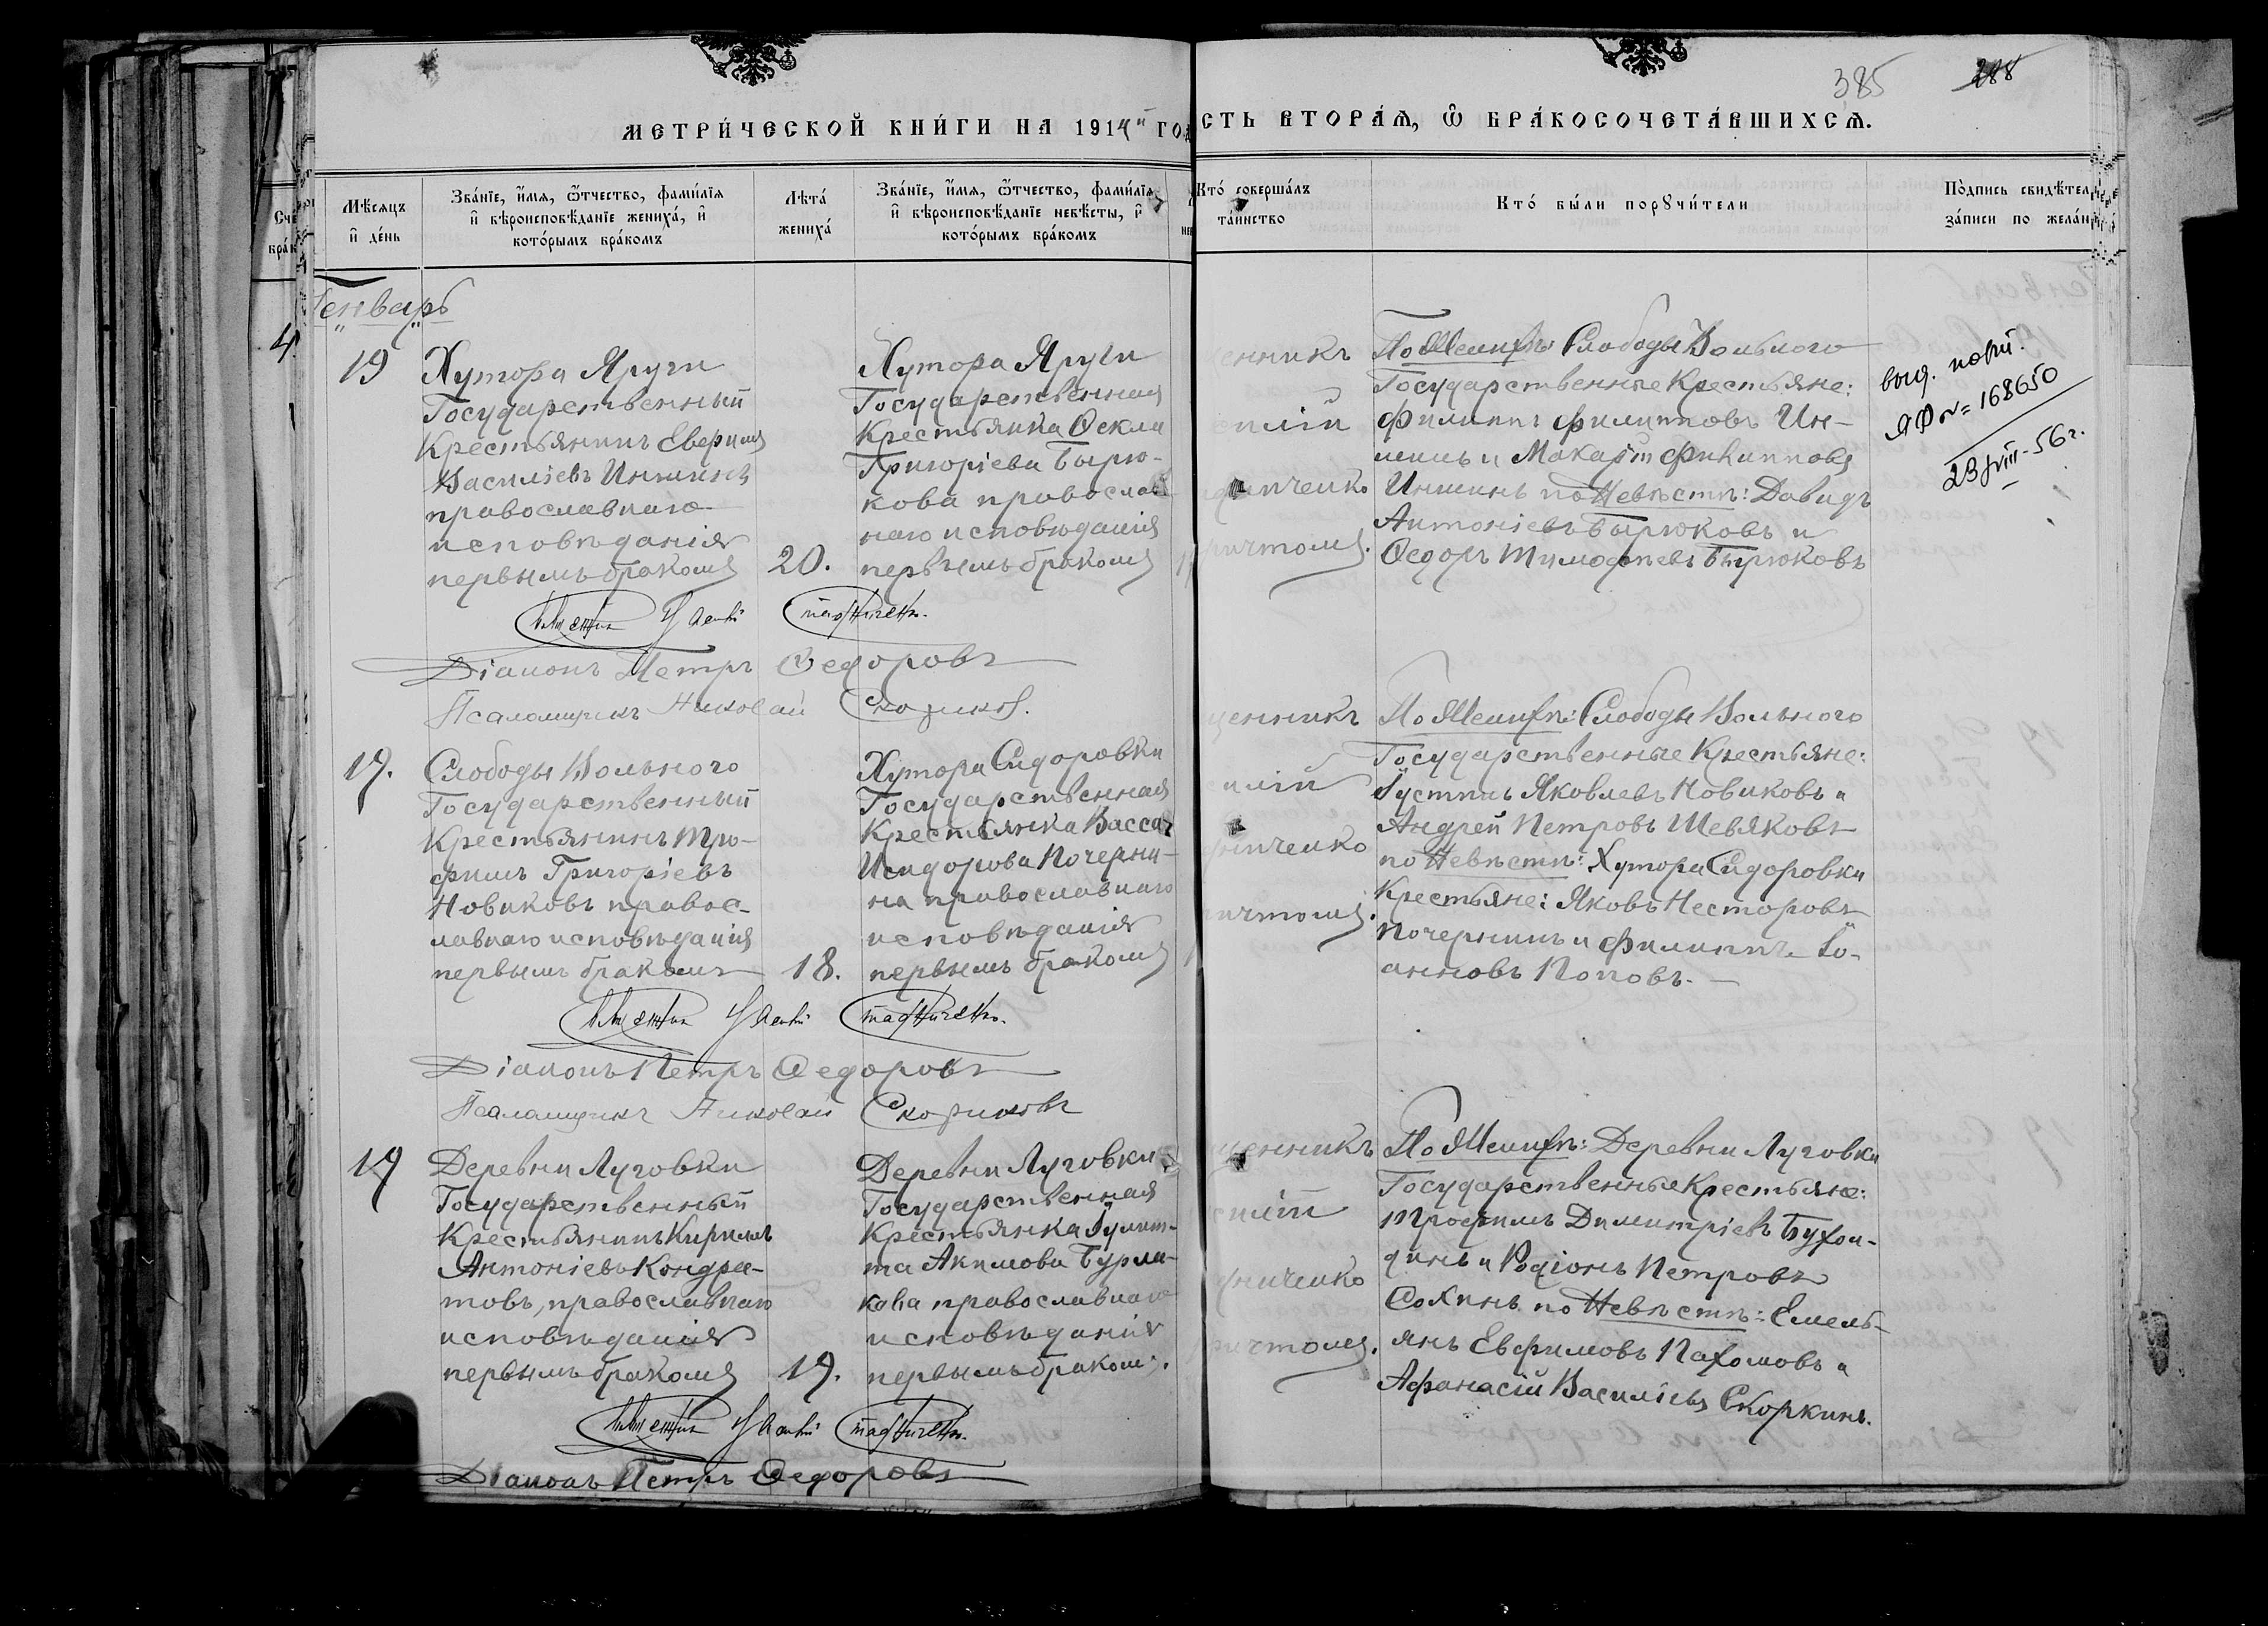 385 288
МЕТРИ́ЧЕСКОЙ КНИ́ГИ НА 1914й ГОД
СТЬ ВТОРА́Ѧ, Ѿ БРА́КОСОЧЕТА́ВШИХСѦ.
Сче
бра́к
Мѣ́сяцъ
и҆ де́нь
Зва́нїе, и҆́мѧ, ѻ҆́тчество, фами́лїѧ
и҆ вѣроисповѣ́данїе жениха́, и҆
кото́рымъ бра́комъ
Лѣта́
жениха́
Зва́нїе, и҆́мѧ, ѻ҆́тчество, фами́лїѧ
и҆ вѣроисповѣ́данїе невѣ́сты, и҆
кото́рымъ бра́комъ
Кто́ соверша́лъ
та́инство
Кто́ бы́ли порꙋчи́тели
По́дпись свидѣ́тел
за́писи по жела́н
Генварь
4.
19
Хутора Яруги
Государственный
Крестьянинъ
Василіевъ Иншинъ
православнаго
исповѣданія
первымъ бракомъ
20.
Хутора Яруги
Государственная
Крестьянка Ѳекла
Григоріева Бырю-
кова православ
наго исповѣданія
первымъ бракомъ
енникъ
силій
пченко
ричтомъ.
По Женихѣ: Слободы Вольного
Государственные Крестьяне:
Филиппъ Филипповъ Ин-
шинъ и Макарій Филипповъ
Иншинъ по Невѣстѣ: Давидъ
Антоніевъ Бырюковъ и
Ѳедоръ Тимофѣевъ Бырюковъ
выд. повт.
ЯФ № 168650
23/VIII-56г.
Діаконъ Петръ Ѳедоровъ
Псаломщикъ Николай Скориковъ
19.
Слободы Вольного
Государственный
Крестьянинъ Тро-
фимъ Григоріевъ
Новиковъ правос-
лавнаго исповѣданія
первымъ бракомъ
18.
Хутора Сидоровки
Государственная
Крестьянка Васса
Исидорова Почерни-
на православнаго
исповѣданія
первымъ бракомъ
щенникъ
силій
дниченко
ричтомъ.
По Женихѣ: Слободы Вольного
Государственные Крестьяне:
Іустинъ Яковлевъ Новиковъ и
Андрей Петровъ Шевяковъ
по Невѣстѣ: Хутора Сидоровки
Крестьяне: Яковъ Несторовъ
Почернинъ и Филиппъ Іо-
анновъ Поповъ.
Діаконъ Петръ Ѳедоровъ
Псаломщикъ Николай Скориковъ
19
Деревни Луговки
Государственный
Крестьянинъ Кириллъ
Антоніевъ Кондра-
товъ, православнаго
исповѣданія
первымъ бракомъ
19.
Деревни Луговки
Государственная
Крестьянка Іулит-
та Акимова Бурла-
кова православнаго
исповѣданія
первымъ бракомъ.
щенникъ
силій
дниченко
ричтомъ.
По Женихѣ: Деревни Луговки
Государственные Крестьяне:
Трофимъ Димитріевъ Бухон-
динъ и Родіонъ Петровъ
Сохинъ по Невѣстѣ: Емель-
янъ Евфимовъ Пахомовъ и
Афанасій Василіевъ Скоркинъ.
Діаконъ Петръ Ѳедоровъ